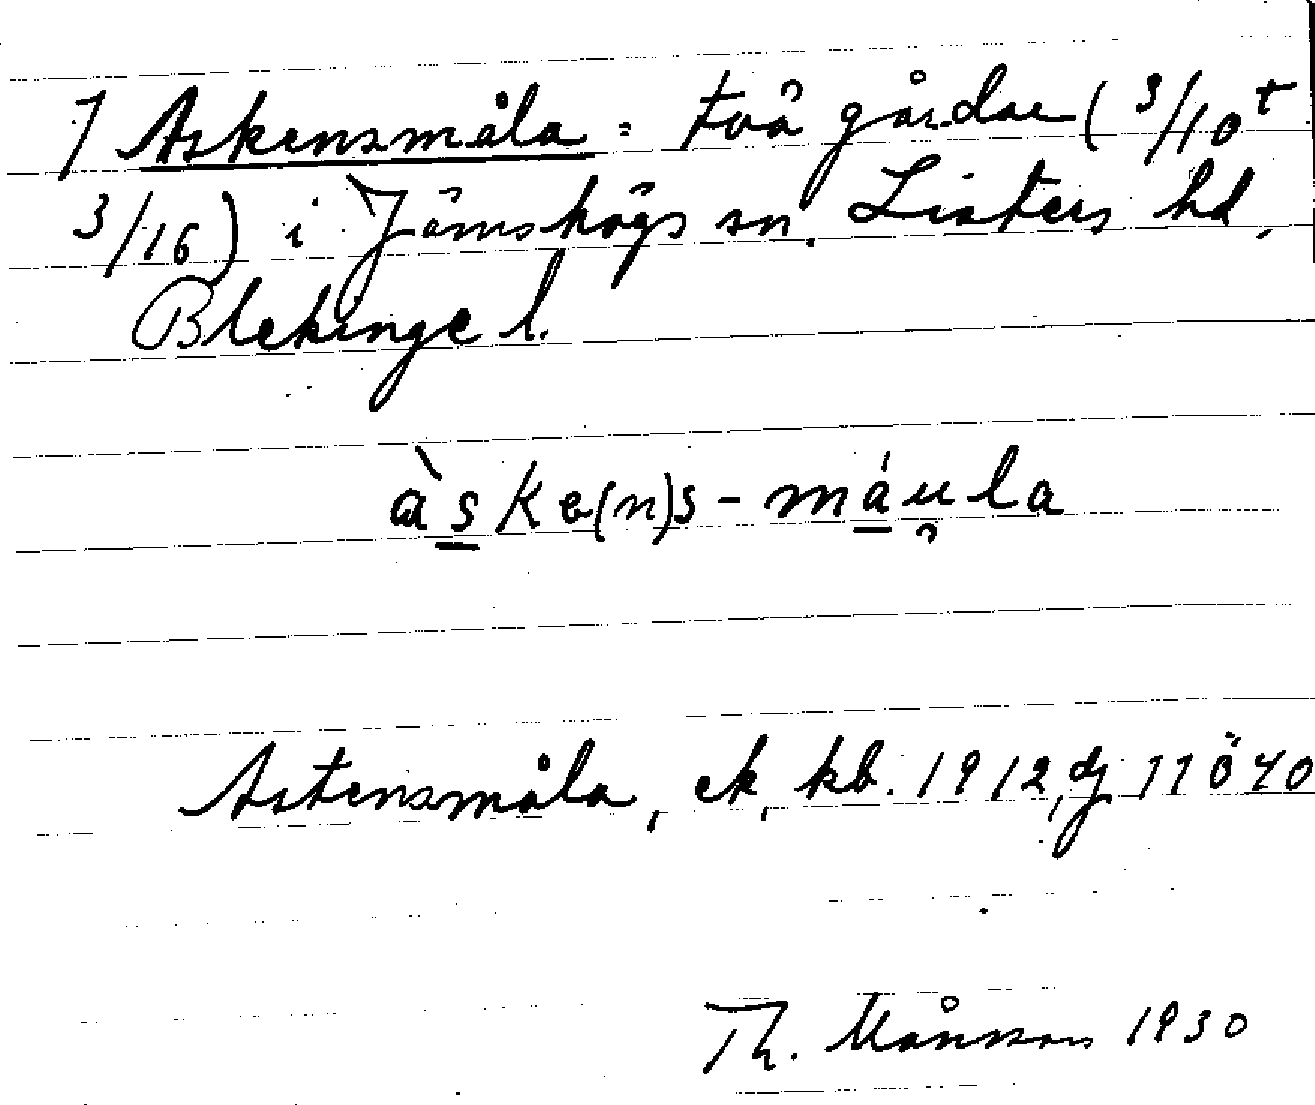 7 Askensmåla = två gårdar ( 3/10 +
3/16) i Jämshögs sn. Listers hd,
Blekinge l.
àske(n)s-máu̯la
Astensmåla, ek, kb. 1912,
Th. Månsson 1930